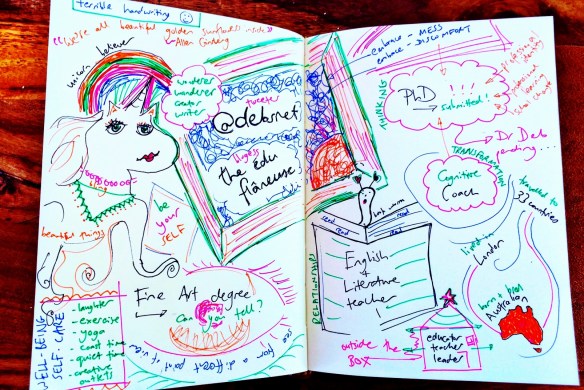 terrible handwriting
"We're all beautiful golden sunflowers inside"
- Allen Ginsberg
unicorn believer
wonderer
wanderer
creator
writer
tweeter
@debsnet
blogess
the édu
flâneuse
bling
be
your
SELF
beautiful things
Fine Art degree
Can you tell?
see from a different point of view
WELL-BEING
SELF-CARE
- laughter
- exercise
- yoga
- quiet time
- creative
outlets
embrace - MESS
embrace - DISCOMFORT
THINKING
PhD
submitted!
identity
professional
learning
school change
Dr Deb
pending...
TRANSFORMATION
Cognitive
Coach
travelled to
33 countries
lived in
London
born & bred
Australian
book worm
read
read
read
English
&
Literature
teacher
RELATIONSHIPS
outside
the
BOX
educator
teacher
leader